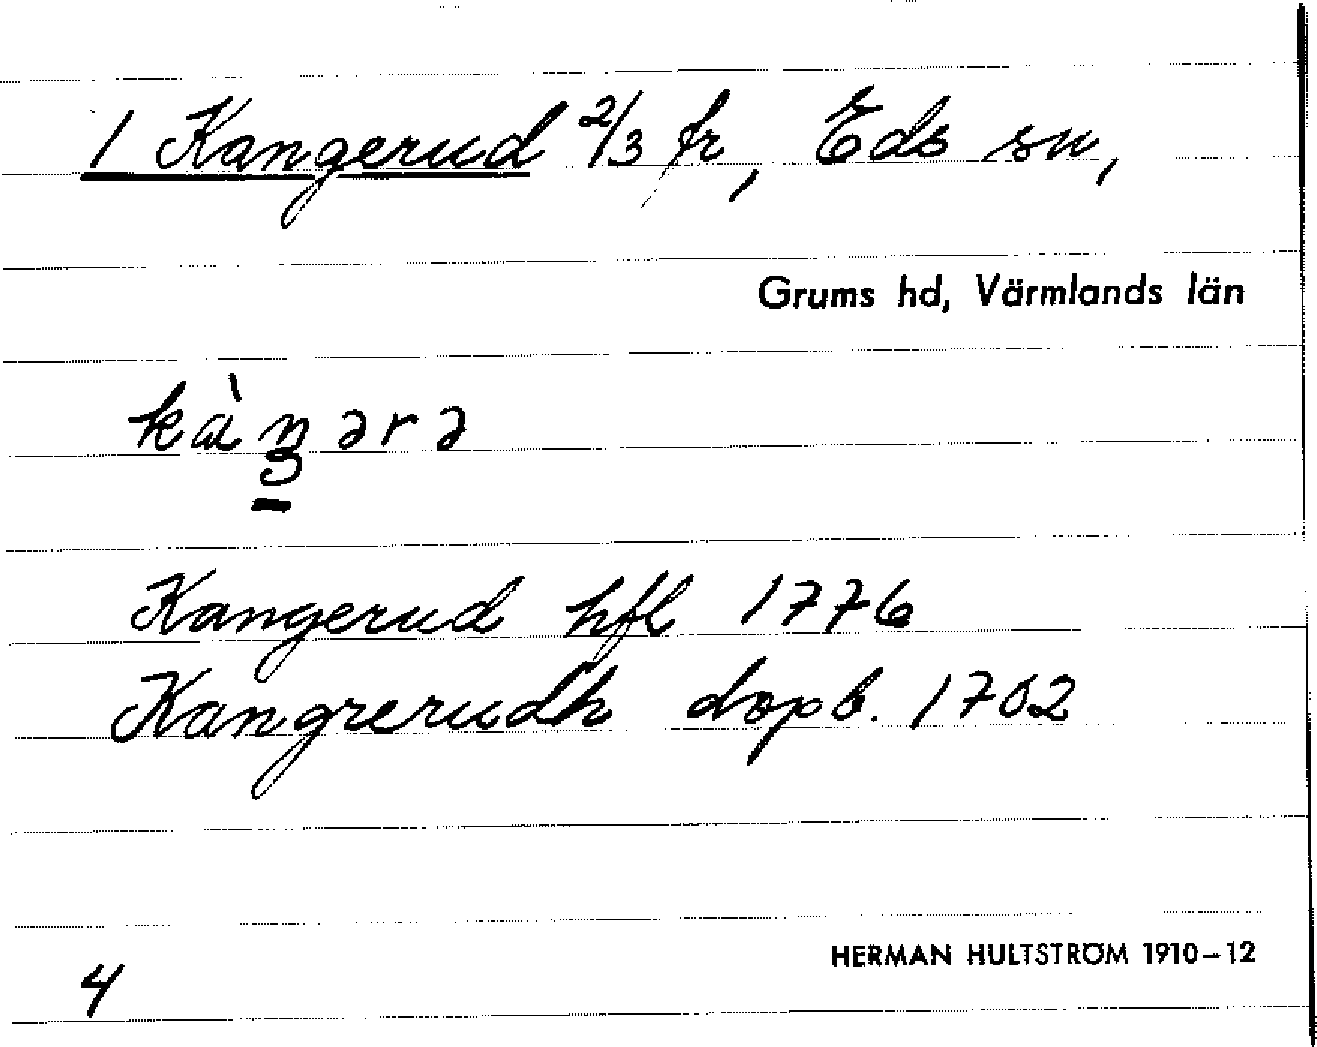 1 Kangerud 2/3 fr, Eds sn,
Grums hd, Värmlands län
kàŋ̠ərə
Kangerud hfl 1776
Kangrerudh dopb. 1702
HERMAN HULTSTRÖM 1910–12
4